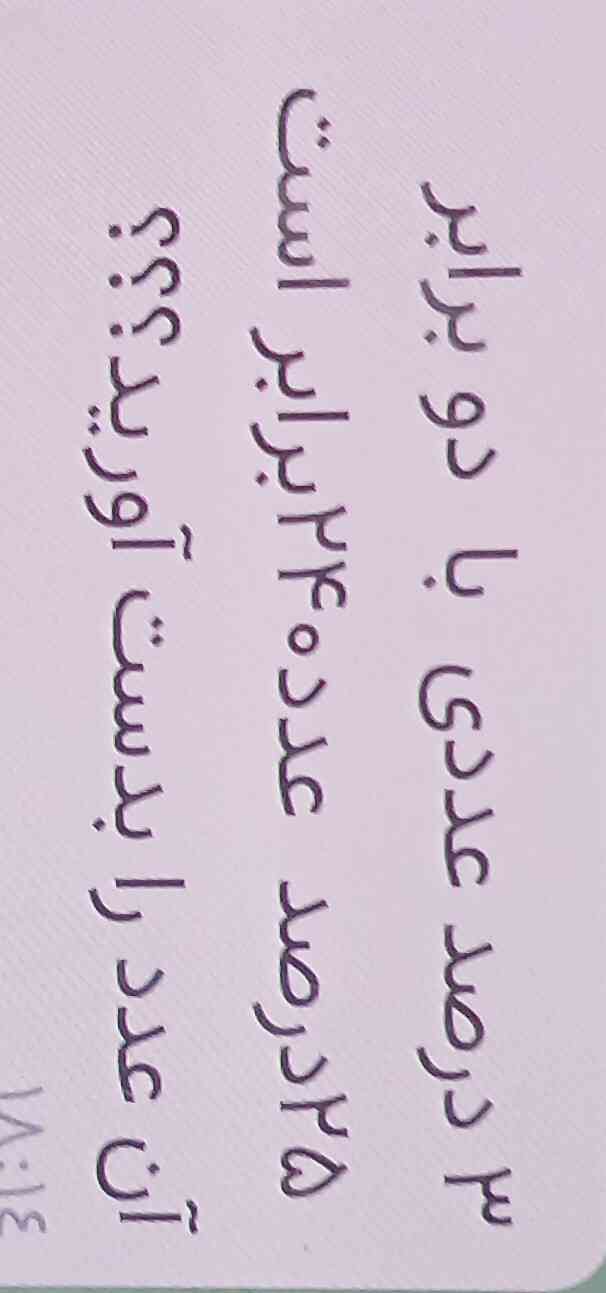 ۳ درصد عددی با دو برابر
۲۵درصد عدد۲۴۰برابر است
آن عدد را بدست آورید؟؟؟
۱۸:۱٤